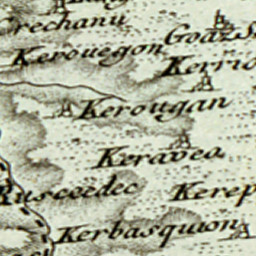 Crechanu
Goazs
Kerouegon
Kerrio
Kerougan
Keravea
Rusceedec
Kerep
Kerbasquion